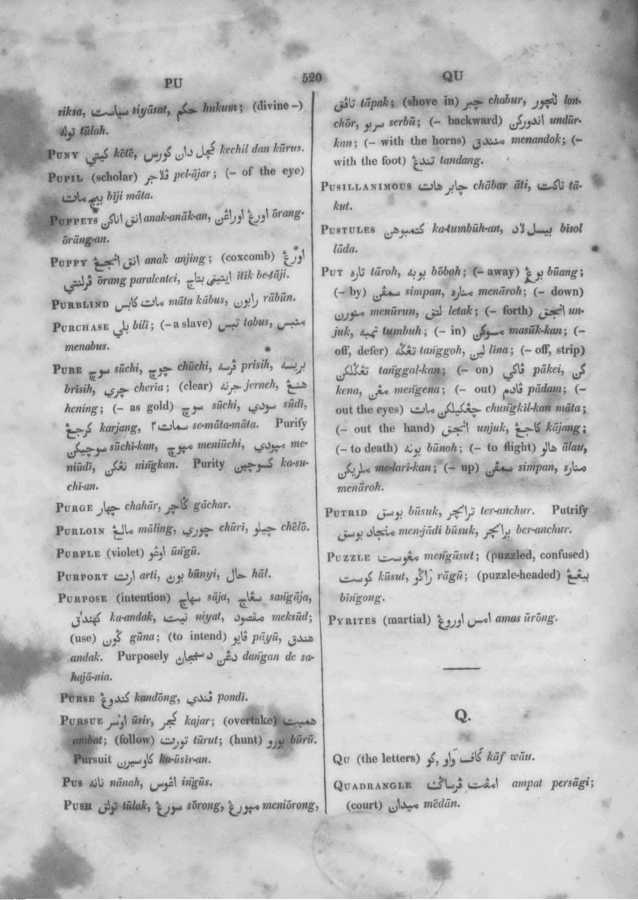 PU
520
QU
siksa, سياست siyāsat, حكم hukum; (divine –)
توله tūlah.
PUNY كيتي kētē, كچل دان كورس kechil dan kūrus.
PUPIL (scholar) فلاجر pel-ājar; (– of the eye)
بيج مات bīji māta.
PUPPETS انق اناكن anak-anāk-an, اورغ اوراغن ōrang-
ōrāng-an.
PUPPY انق انجيڠ anak anjing; (coxcomb) اورڠ
ōrang paralentei, ايتيق بتاج itik be-tāji.
PURBLIND مات كابس māta kābus, رابون rābūn.
PURCHASE بلي bili; (– a slave) تبس tabus, منبس
menabus.
PURE سوچي sūchi, چوچي chūchi, فرسه prisih, بريسه
brisih, چري cheria; (clear) جرنه jerneh, هنيڠ
hening; (– as gold) سوچي sūchi, سودي sūdi,
كرجڠ karjang, سمات ٢ se-māta-māta. Purify
سوچيكن sūchi-kan, ميوچي meniūchi, ميودي me-
niūdi, نڠكن ningkan. Purity كسوچين ka-su-
chi-an.
PURGE چهار chahār, كاچر gāchar.
PURLOIN مالڠ māling, چوري chūri, چيلو chēlō.
PURPLE (violet) اوڠو ūngū.
PURPORT ارت arti, بوني būnyi, حال hāl.
PURPOSE (intention) سهاج sāja, سڠاج sangāja,
كهندق ka-andak, نيت niyat, مقصود meksūd;
(use) كون gūna; (to intend) فايو pāyū, هندق
andak. Purposely دڠن دسهجان dangan de sa-
hajā-nia.
PURSE كندوڠ kandōng, فندي pondi.
PURSUE اوسر ūsir, كجر kajar; (overtake) همبت
ambat; (follow) تورت tūrut; (hunt) بورو būrū.
Pursuit كاوسيرن ka-ūsir-an.
PUS نانه nānah, اغوس ingūs.
PUSH تولق tūlak, سورڠ sōrong, ميورڠ meniōrong,
تافق tāpak; (shove in) چبر chabur, لنچور lon-
chōr, سربو serbū; (– backward) اندوركن undūr-
kan; (– with the horns) منندق menandok; (–
with the foot) تندڠ tandang.
PUSILLANIMOUS چابر هات chābar āti, تاكت tā-
kut.
PUSTULES كتمبوهن ka-tumbūh-an, بيسل لاد bisol
lāda.
PUT تاره tāroh, بوبه bōboh; (– away) بوڠ būang;
(– by) سمفن simpan, مناره menāroh; (– down)
منورن menūrun, لتق letak; (– forth) انجق un-
juk, تمبه tumbuh; (– in) مسوكن masūk-kan; (–
off, defer) تڠكه tanggoh, لين lina; (– off, strip)
تڠكلكن tanggal-kan; (– on) فاكي pākei, كن
kena, مڠن mengena; (– out) فادم pādam; (–
out the eyes) چڠكيلكن مات chungkil-kan māta;
(– out the hand) انجق unjuk, كاجڠ kājang;
(– to death) بونه būnoh; (– to flight) هالو ālau,
ملاريكن me-lari-kan; (– up) سمفن simpan, مناره
menāroh.
PUTRID بوسق būsuk, ترانچر ter-anchur. Putrify
منجاد بوسق men-jādi būsuk, برانچر ber-anchur.
PUZZLE مڠوست mengūsut; (puzzled, confused)
كوست kūsut, راگو rāgū; (puzzle-headed) بيڠڠ
bingong.
PYRITES (martial) امس اوروڠ amas ūrōng.
Q.
QU (the letters) كاف واو, كو kāf wāu.
QUADRANGLE امفت فرساڬي ampat persāgi;
(court) ميدان mēdān.